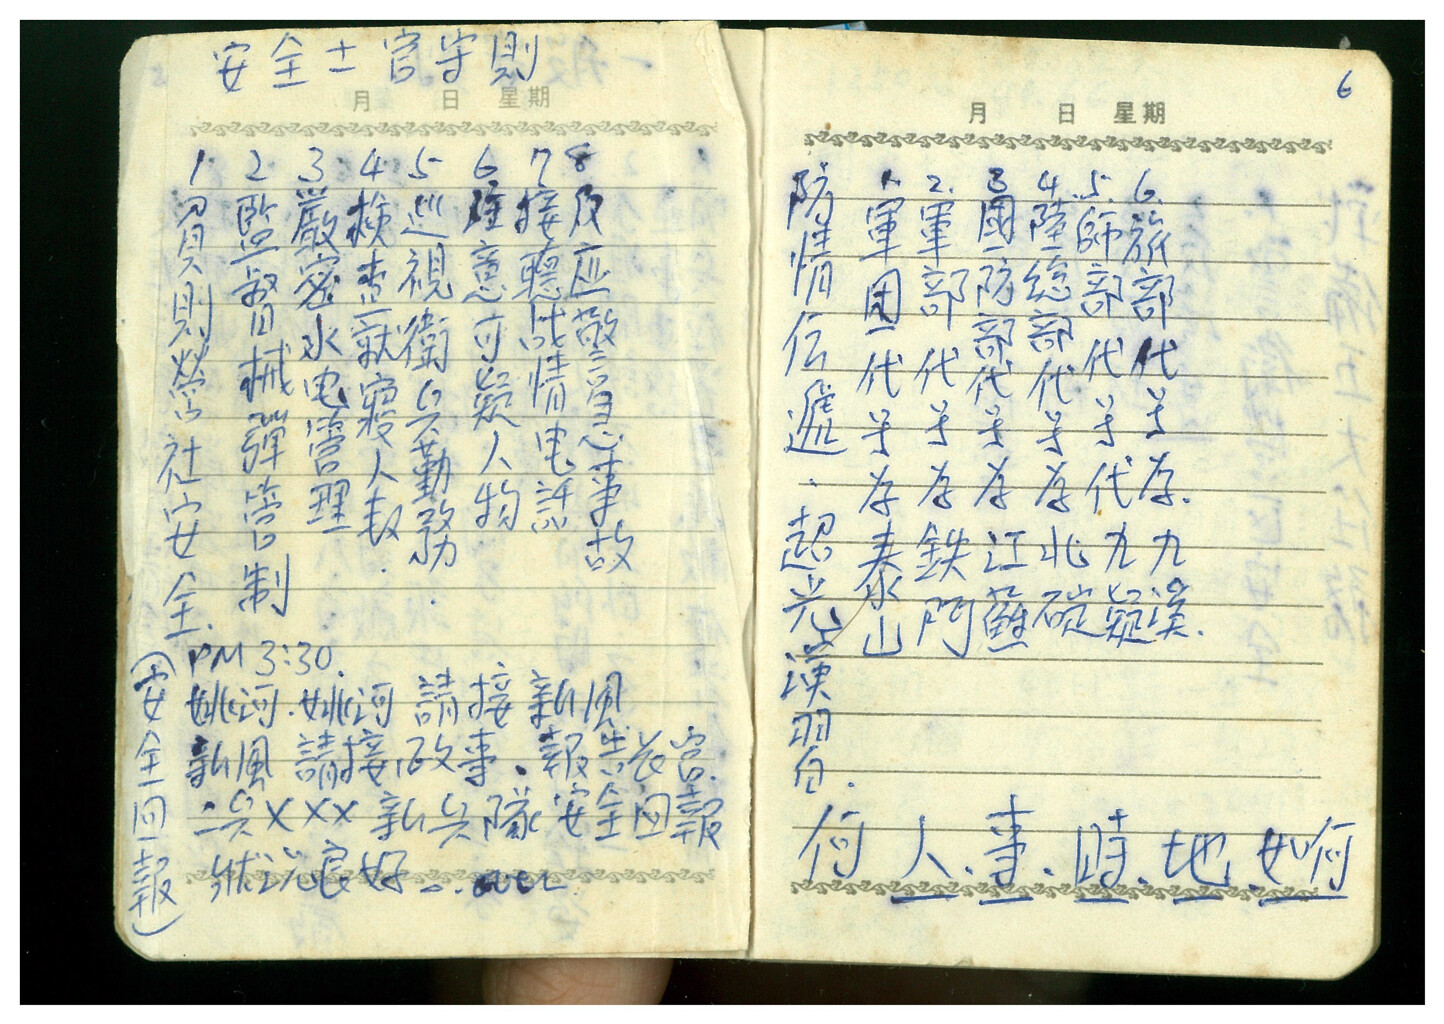 安全士官守則
月 日 星期
1.負責則營社安全.
2監督械彈管制
3嚴密水电管理
4檢查就寢人数.
5巡視衛兵勤務.
6注意可疑人物
7接聽战情电話
8反应警急事故
PM 3:30.
姚河.姚河請接新風
新風請接,政事.報告长官.
二兵XXX新兵隊安全回報
状況良好 over
(安全回報)
6
月 日 星期
防情伝遞.超光漢羽白.
1.軍団代号為泰山
2.軍部代号為鉄門
3國防部代号為江蘇
4.陸総部代号為北碇
5.師部代号代九疑
6.旅部代号為.九溪.
何人.事.時.地.如何